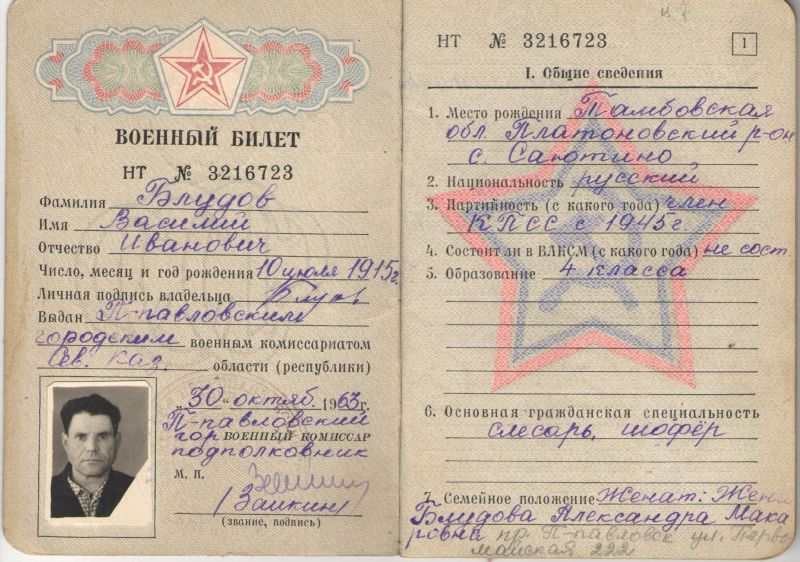 ВОЕННЫЙ БИЛЕТ
НТ № 3216723
Фамилия Блудов
Имя Василий
Отчество Иванович
Число, месяц и год рождения 10 июля 1915г.
Личная подпись владельца Блудов
Выдан П-павловским
городским военным комиссариатом
Сев. Каз. области (республики)
„30“ октяб. 1963г.
П-павловский
гор ВОЕННЫЙ КОМИССАР
подполковник
М. П.
(Заикин)
(звание, подпись)
НТ № 3216723
1
I. Общие сведения
1. Место рождения Тамбовская
обл. Платоновский р-он
с. Саютино
2. Национальность русский
3. Партийность (с какого года) член
КПСС с 1945г.
4. Состоит ли в ВЛКСМ (с какого года) не сост.
5. Образование 4 класса
6. Основная гражданская специальность
слесарь, шофёр
7. Семейное положение Женат: Жена
Блудова Александра Мака
ровна пр. П-павловск ул. Перво
майская 222